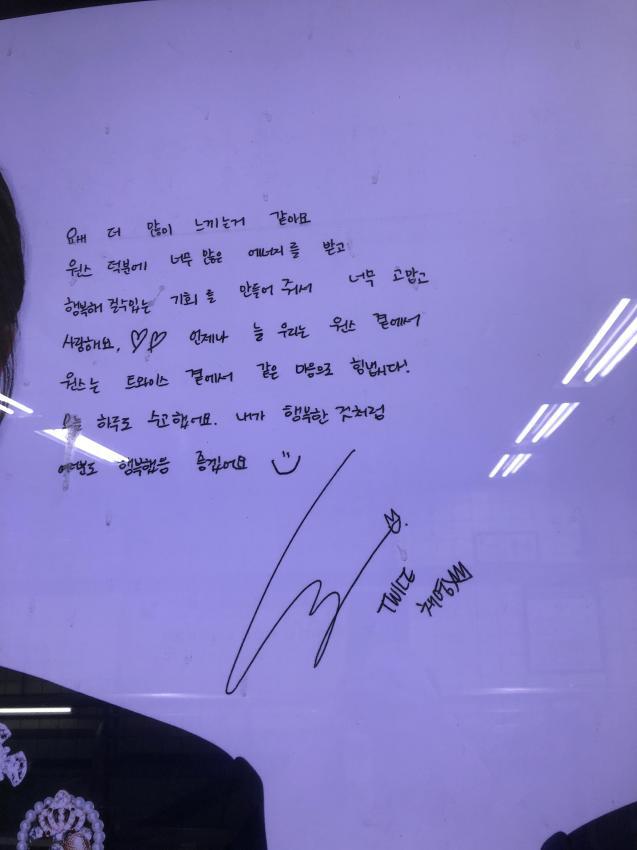 요새 더 많이 느끼는거 같아요
원스 덕분에 너무 많은 에너지를 받고
행복해 질수있는 기회를 만들어 줘서 너무 고맙고
사랑해요, ♡♡ 언제나 늘 우리는 원스 곁에서
원스는 트와이스 곁에서 같은 마음으로 힘냅시다!
오늘 하루도 수고했어요. 내가 행복한 것처럼
여러분도 행복했음 좋겠어요
TWICE
채영